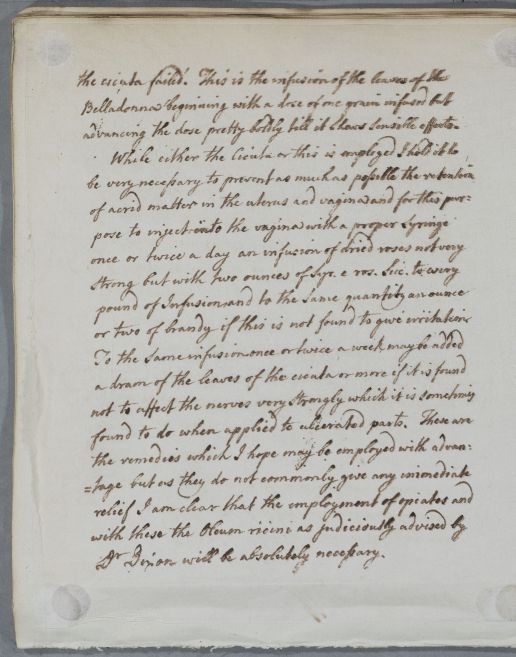 the cicuta failed. This is the infusion of the leaves of the
Belladonna beginning with a dose of one grain infused but
advancing the dose pretty boldly till it shews sensible effects.
While either the Cicuta or this is employed I hold it to
be very necessary to prevent as much as possible the retention
of acrid matter in the uterus and vagina and for this pur-
pose to inject into the vagina with a proper Syringe
once or twice a day an infusion of dried roses not very
strong but with two ounces of Syr. e ros. Sic. to every
pound of Infusion and to the same quantity an ounce
or two of brandy if this is not found to give irritation
To the same infusion once or twice a week may be added
a dram of the leaves of the cicuta or more if it is found
not to affect the nerves very strongly which it is sometimes
found to do when applied to ulcerated parts. These are
the remedies which I hope may be employed with advan:
=tage but as they do not commonly give any immediate
relief I am clear that the employment of opiates and
with these the Oleum ricini as judiciously advised by
Dr Dixon will be absolutely necessary.